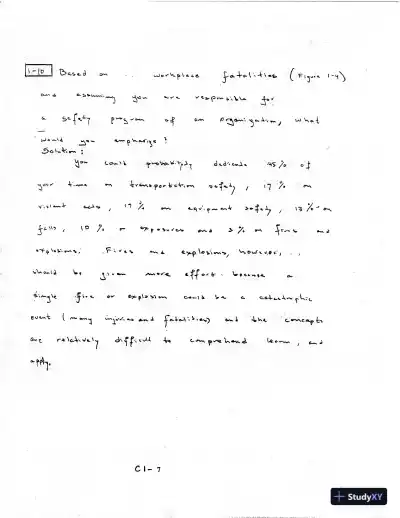 1-10 Based on .. workplace fatalities (Figure 1-4)
and assuming you are responsible for
a safety program of an organization, what
would you emphasize?
Solution:
You could probably dedicate 45% of
your time on transportation safety, 17% on
violent acts, 17% on equipment safety, 13% on
falls, 10% on exposures and 3% on fires and
explosions. Fires and explosions, however, ..
should be given more effort. because a
single fire or explosion could be a catastrophic
event (many injuries and fatalities) and the concepts
are relatively difficult to comprehend learn, and
apply.
C1-7
StudyXY